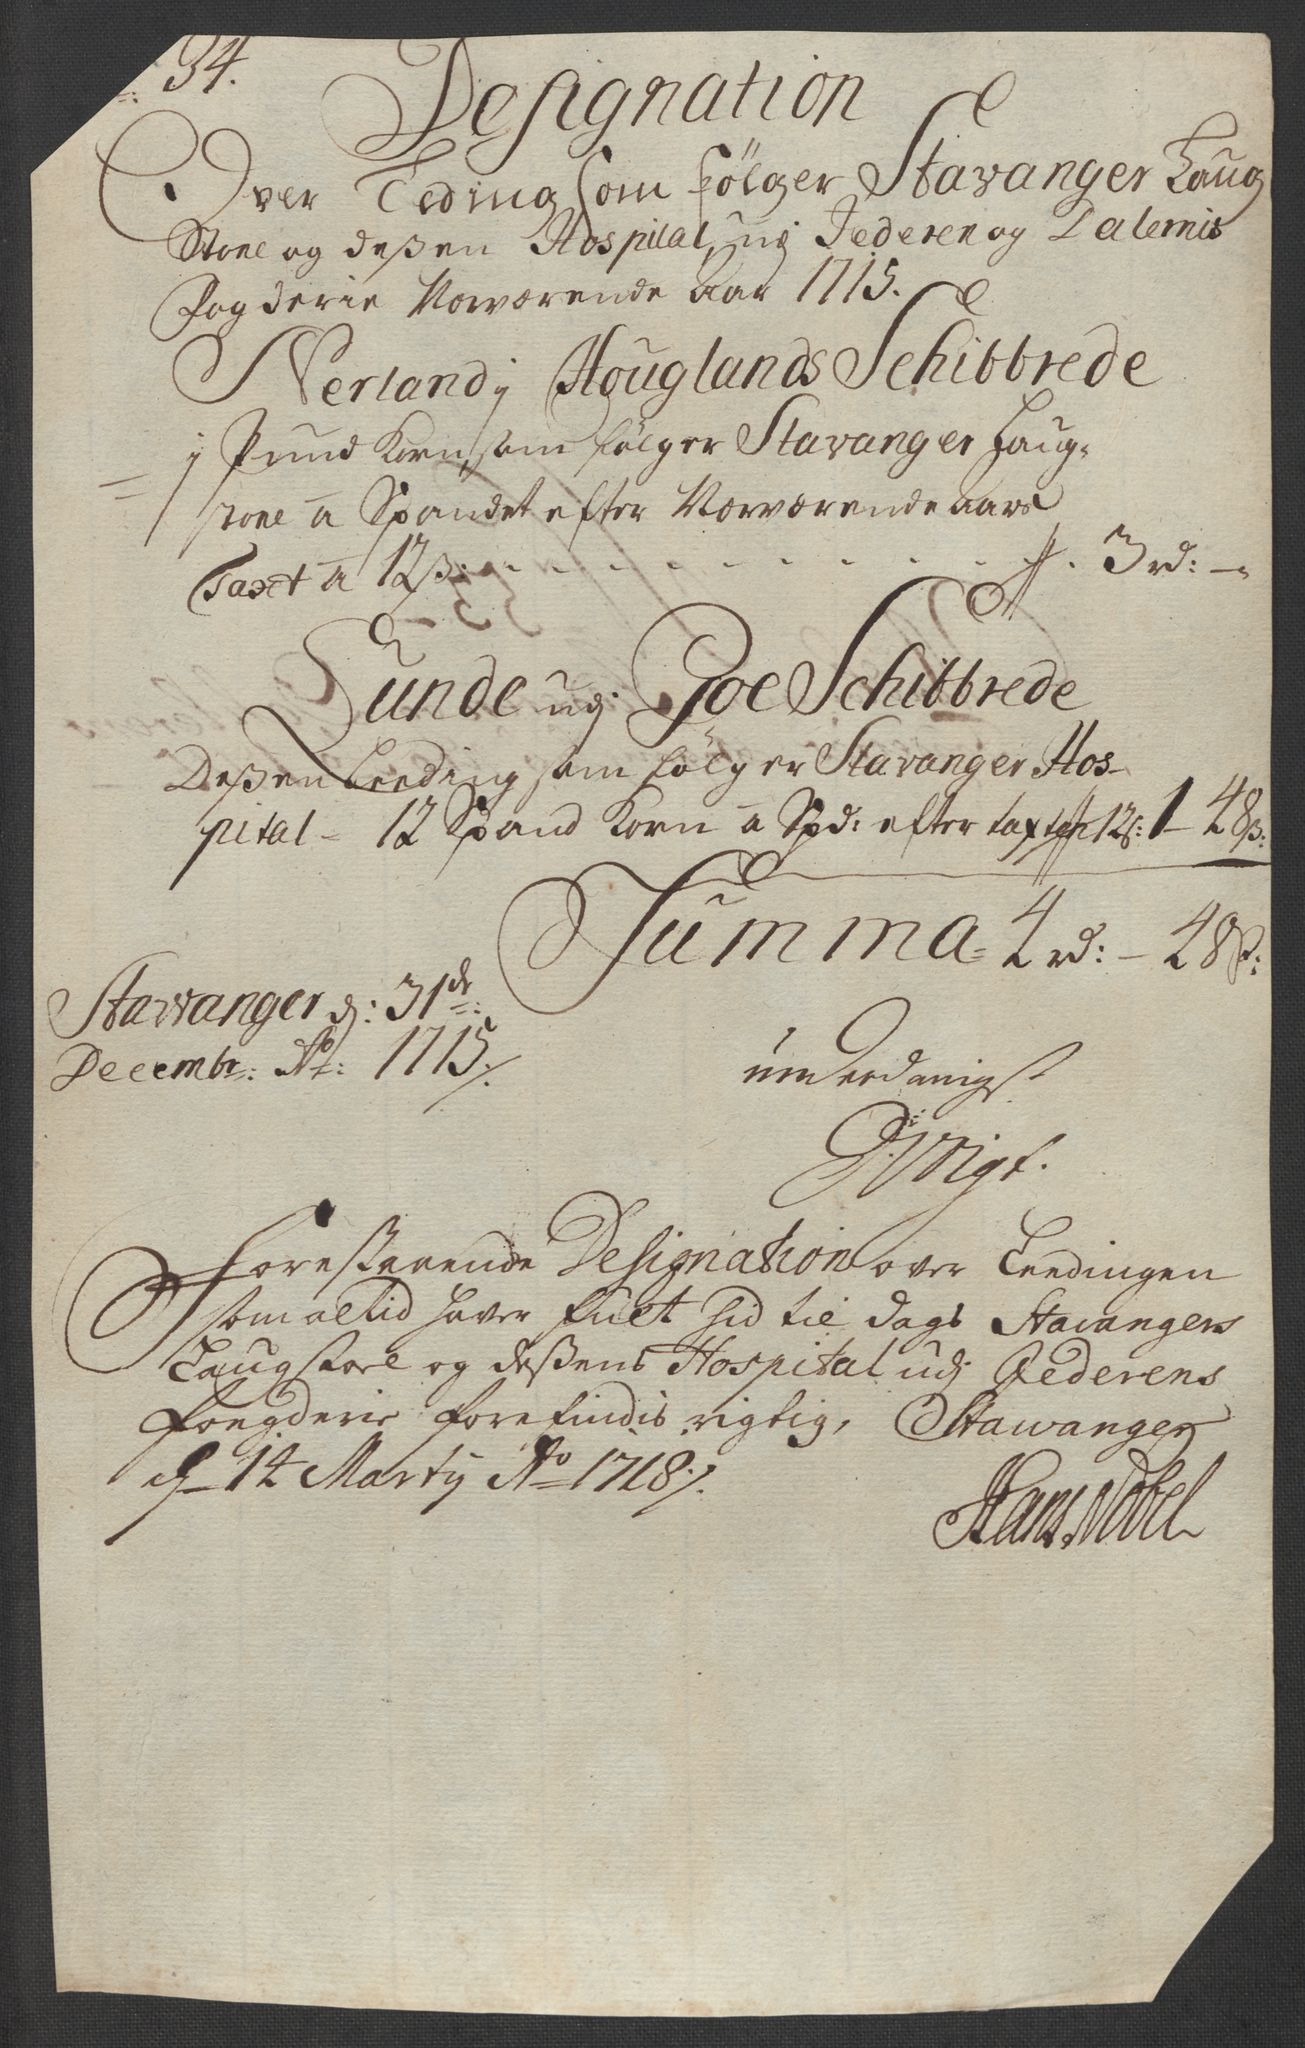 34.
Designation
Over Leding som følger Stavanger Laug
Stoel og deßen Hospital, udj Jederen og Dalernis
Fogderie Nærværende Aar 1715.
Nerland j Houglands Schibbrede
j Pund Korn, som følger Stavanger Laug-
stoel a Spandet efter Nærværende aars
Taxt a 12 ß: 3 rd: -
Lunde udj Goe Schibbrede
Deßen Leeding som følger Stavanger Hos-
pital - 12 Spand Korn a Spd: efter taxten 12ß: 1 - 48ß:
Summa - 4 rd: - 48ß:
Stavanger d: 31de:
Decembr: Ao: 1715.
underdanigst
Voigt.
Forestaaende Designation over Leedingen
som altid haver fult hid til dags Stavangers
Laugstoel og deßens Hospital udj Jederens
Fougderie forefindis rigtig, Stawanger
d 14 Martij Ao 1718.
Hans Nobel